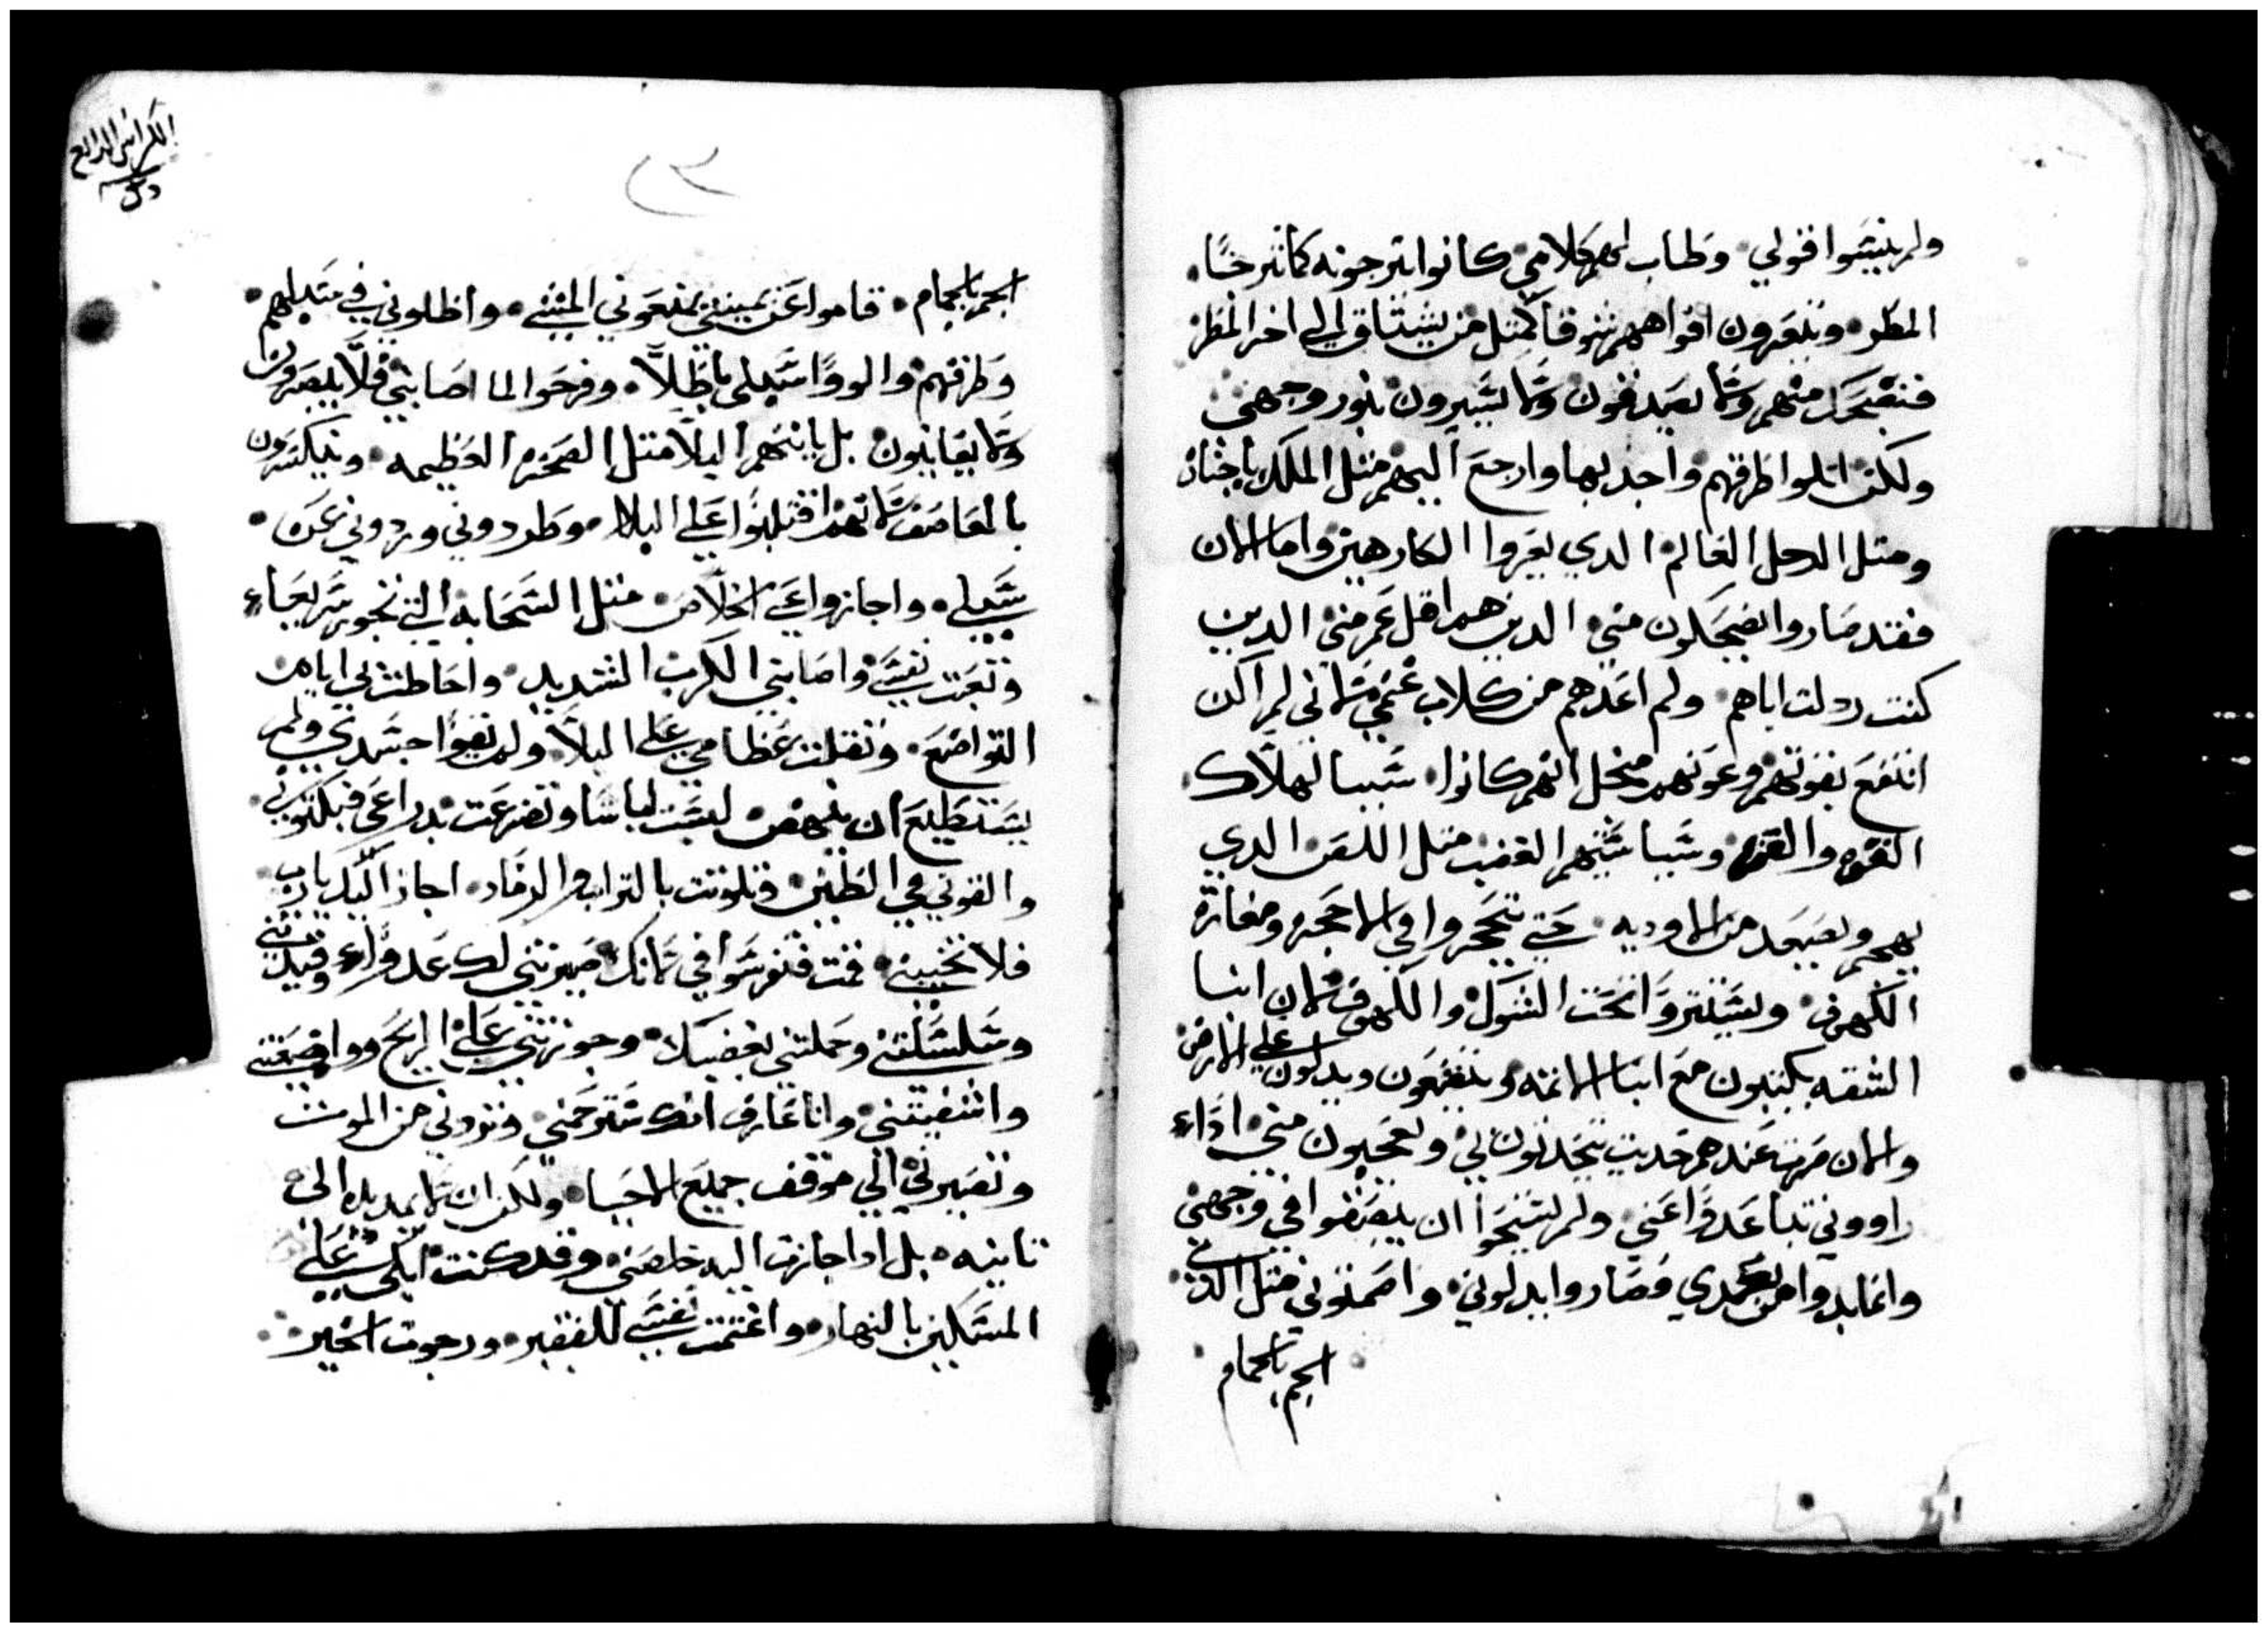 ولم ينيتوا قولي وطاب لهم كلامي كانوا يترجونه كما تترجا
المطر ويفغرون افواههم شوقا كمثل من يشتاق الي اخر المطر
فنضحك منهم ولا يصدقون ولا يسيرون بنور وجهي
ولكن اتلوا طرقهم واجد بها وارجع اليهم مثل الملك باجناد
ومتل الرجل العالم الدي يعزوا الكارهين واما الان
فقد صاروا يضحكون مني الدين هم اقل عمر مني الدين
كنت ردلت اباهم ولم اعدهم من كلاب غنمي لاني لم اكن
انتفع بقوتهم وعونهم منحل انهم كانوا سببا لهلاك
القوه والقوه وسببا شبههم الغضب متل اللص الدي
يهجم ويصعد من الاوديه حتي يتحجروا في الاحجره ومغارة
الكهوف ويستتروا تحت الشوك والكهوف لان ابنا
الشقه يكتبون مع ابنا الاتمه ويتضعون ويدلون علي الارض
والان صرت عندهم حديت يتحدتون بي ويعجبون مني اداء
راووني تباعدوا عني ولم يستحوا ان يبصقوا في وجهي
وانما بدوا من بعدي وصاروا يبدلوني واضمتوني متل الدي
الجم بالجام
الكراس الرابع
الجم بالجام قاموا عن يميني يمنعوني المشي واظلوني في سبلهم
وطرقهم والووا سبلي باطلا وفرحوا لما اصابني فلا يبصرون
ولا يعاينون بل ياتيهم البلا متل الصخره العظيمه ويتكسرون
بالعاصف لانهم اقبلوا علي البلا وطردوني وردوني عن
سبلي واجازوا عني الخلاص متل السحابه التي تجوز سريعاء
وتعبت نفسي واصابني الكرب الشديد واحاطت بي ايام
التواضع وتقلت عظامي علي البلا ولم يقوا جسدي ولم
يستطيع ان ينهض لبست لباسا وتضرعت بدراعي فبكتوني
والقوني في الطين وتلوتت بالتراب والرماد اجاز اليك يارب
فلا تجيبني قمت فتفرسوا في لانك صيرتني لك عدوا وقيدتني
وسلسلتني وحملتني بغضبك وجوزتني علي الريح وواضعتني
واشفيتني وانا عارف انك سترحمني وتردني من الموت
وتصيرني الي موقف جميع الاحيا ولكن ان لا يمد يده الي
تانيه بل ادا جازت اليه خلصني وقد كنت ابكي علي
المسكين بالنهار واغتمت نفسي للفقير ورجوت الخير